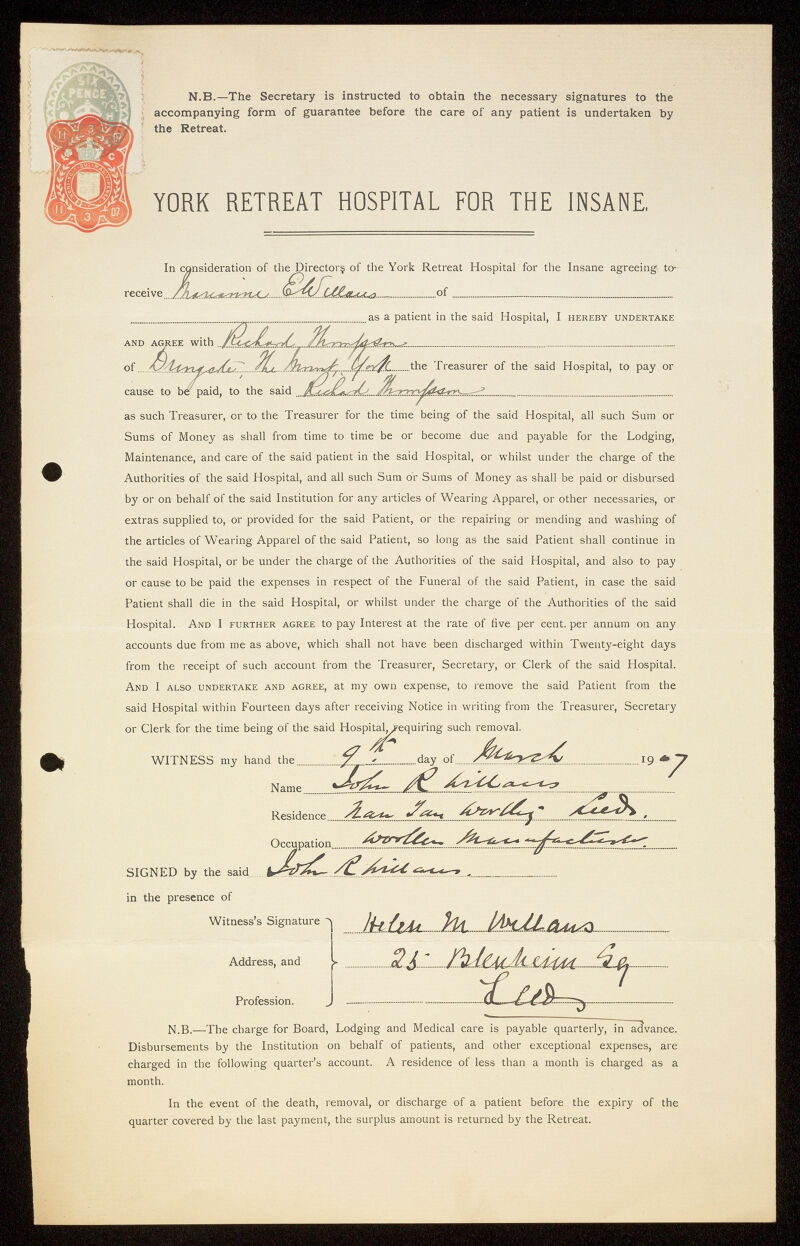 SIX
PENCE
11 3 07
11 3 07
N.B.—The Secretary is instructed to obtain the necessary signatures to the
accompanying form of guarantee before the care of any patient is undertaken by
the Retreat.
YORK RETREAT HOSPITAL FOR THE INSANE.
In consideration of the Directors of the York Retreat Hospital for the Insane agreeing to
receive Marianne E Willans of
as a patient in the said Hospital, I HEREBY UNDERTAKE
AND AGREE with Richard Thompson
of Dringcote, The Mount, York the Treasurer of the said Hospital, to pay or
cause to be paid, to the said Richard Thompson
as such Treasurer, or to the Treasurer for the time being of the said Hospital, all such Sum or
Sums of Money as shall from time to time be or become due and payable for the Lodging,
Maintenance, and care of the said patient in the said Hospital, or whilst under the charge of the
Authorities of the said Hospital, and all such Sum or Sums of Money as shall be paid or disbursed
by or on behalf of the said Institution for any articles of Wearing Apparel, or other necessaries, or
extras supplied to, or provided for the said Patient, or the repairing or mending and washing of
the articles of Wearing Apparel of the said Patient, so long as the said Patient shall continue in
the said Hospital, or be under the charge of the Authorities of the said Hospital, and also to pay
or cause to be paid the expenses in respect of the Funeral of the said Patient, in case the said
Patient shall die in the said Hospital, or whilst under the charge of the Authorities of the said
Hospital. AND I FURTHER AGREE to pay Interest at the rate of five per cent. per annum on any
accounts due from me as above, which shall not have been discharged within Twenty-eight days
from the receipt of such account from the Treasurer, Secretary, or Clerk of the said Hospital.
AND I ALSO UNDERTAKE AND AGREE, at my own expense, to remove the said Patient from the
said Hospital within Fourteen days after receiving Notice in writing from the Treasurer, Secretary
or Clerk for the time being of the said Hospital, requiring such removal.
WITNESS my hand the 9th day of March 1907
Name John R Willans
Residence Worthy Leeds.
Occupation Woollen Manufacturer.
SIGNED by the said John R Willans.
in the presence of
Witness's Signature Helen M Willans
Address, and 25 Blenheim Sq
Profession. Leeds
N.B.—The charge for Board, Lodging and Medical care is payable quarterly, in advance.
Disbursements by the Institution on behalf of patients, and other exceptional expenses, are
charged in the following quarter's account. A residence of less than a month is charged as a
month.
In the event of the death, removal, or discharge of a patient before the expiry of the
quarter covered by the last payment, the surplus amount is returned by the Retreat.